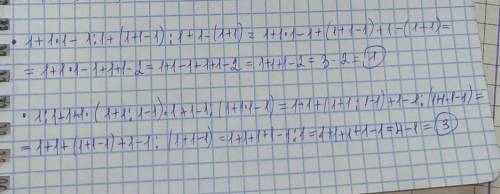 • 1+1·1-1:1+(1+1-1):1+1-(1+1)=1+1·1-1+(1+1-1)+1-(1+1)=
=1+1·1-1+1+1-2=1+1-1+1+1-2=1+1+1-2=3-2=1
• 1:1+1·(1+1:1-1)·1+1-1:(1+1·1-1)=1+1·(1+1:1-1)+1-1:(1+1·1-1)=
=1+1+(1+1-1)+1-1:(1+1-1)=1+1+1+1-1:1=1+1+1+1-1=4-1=3